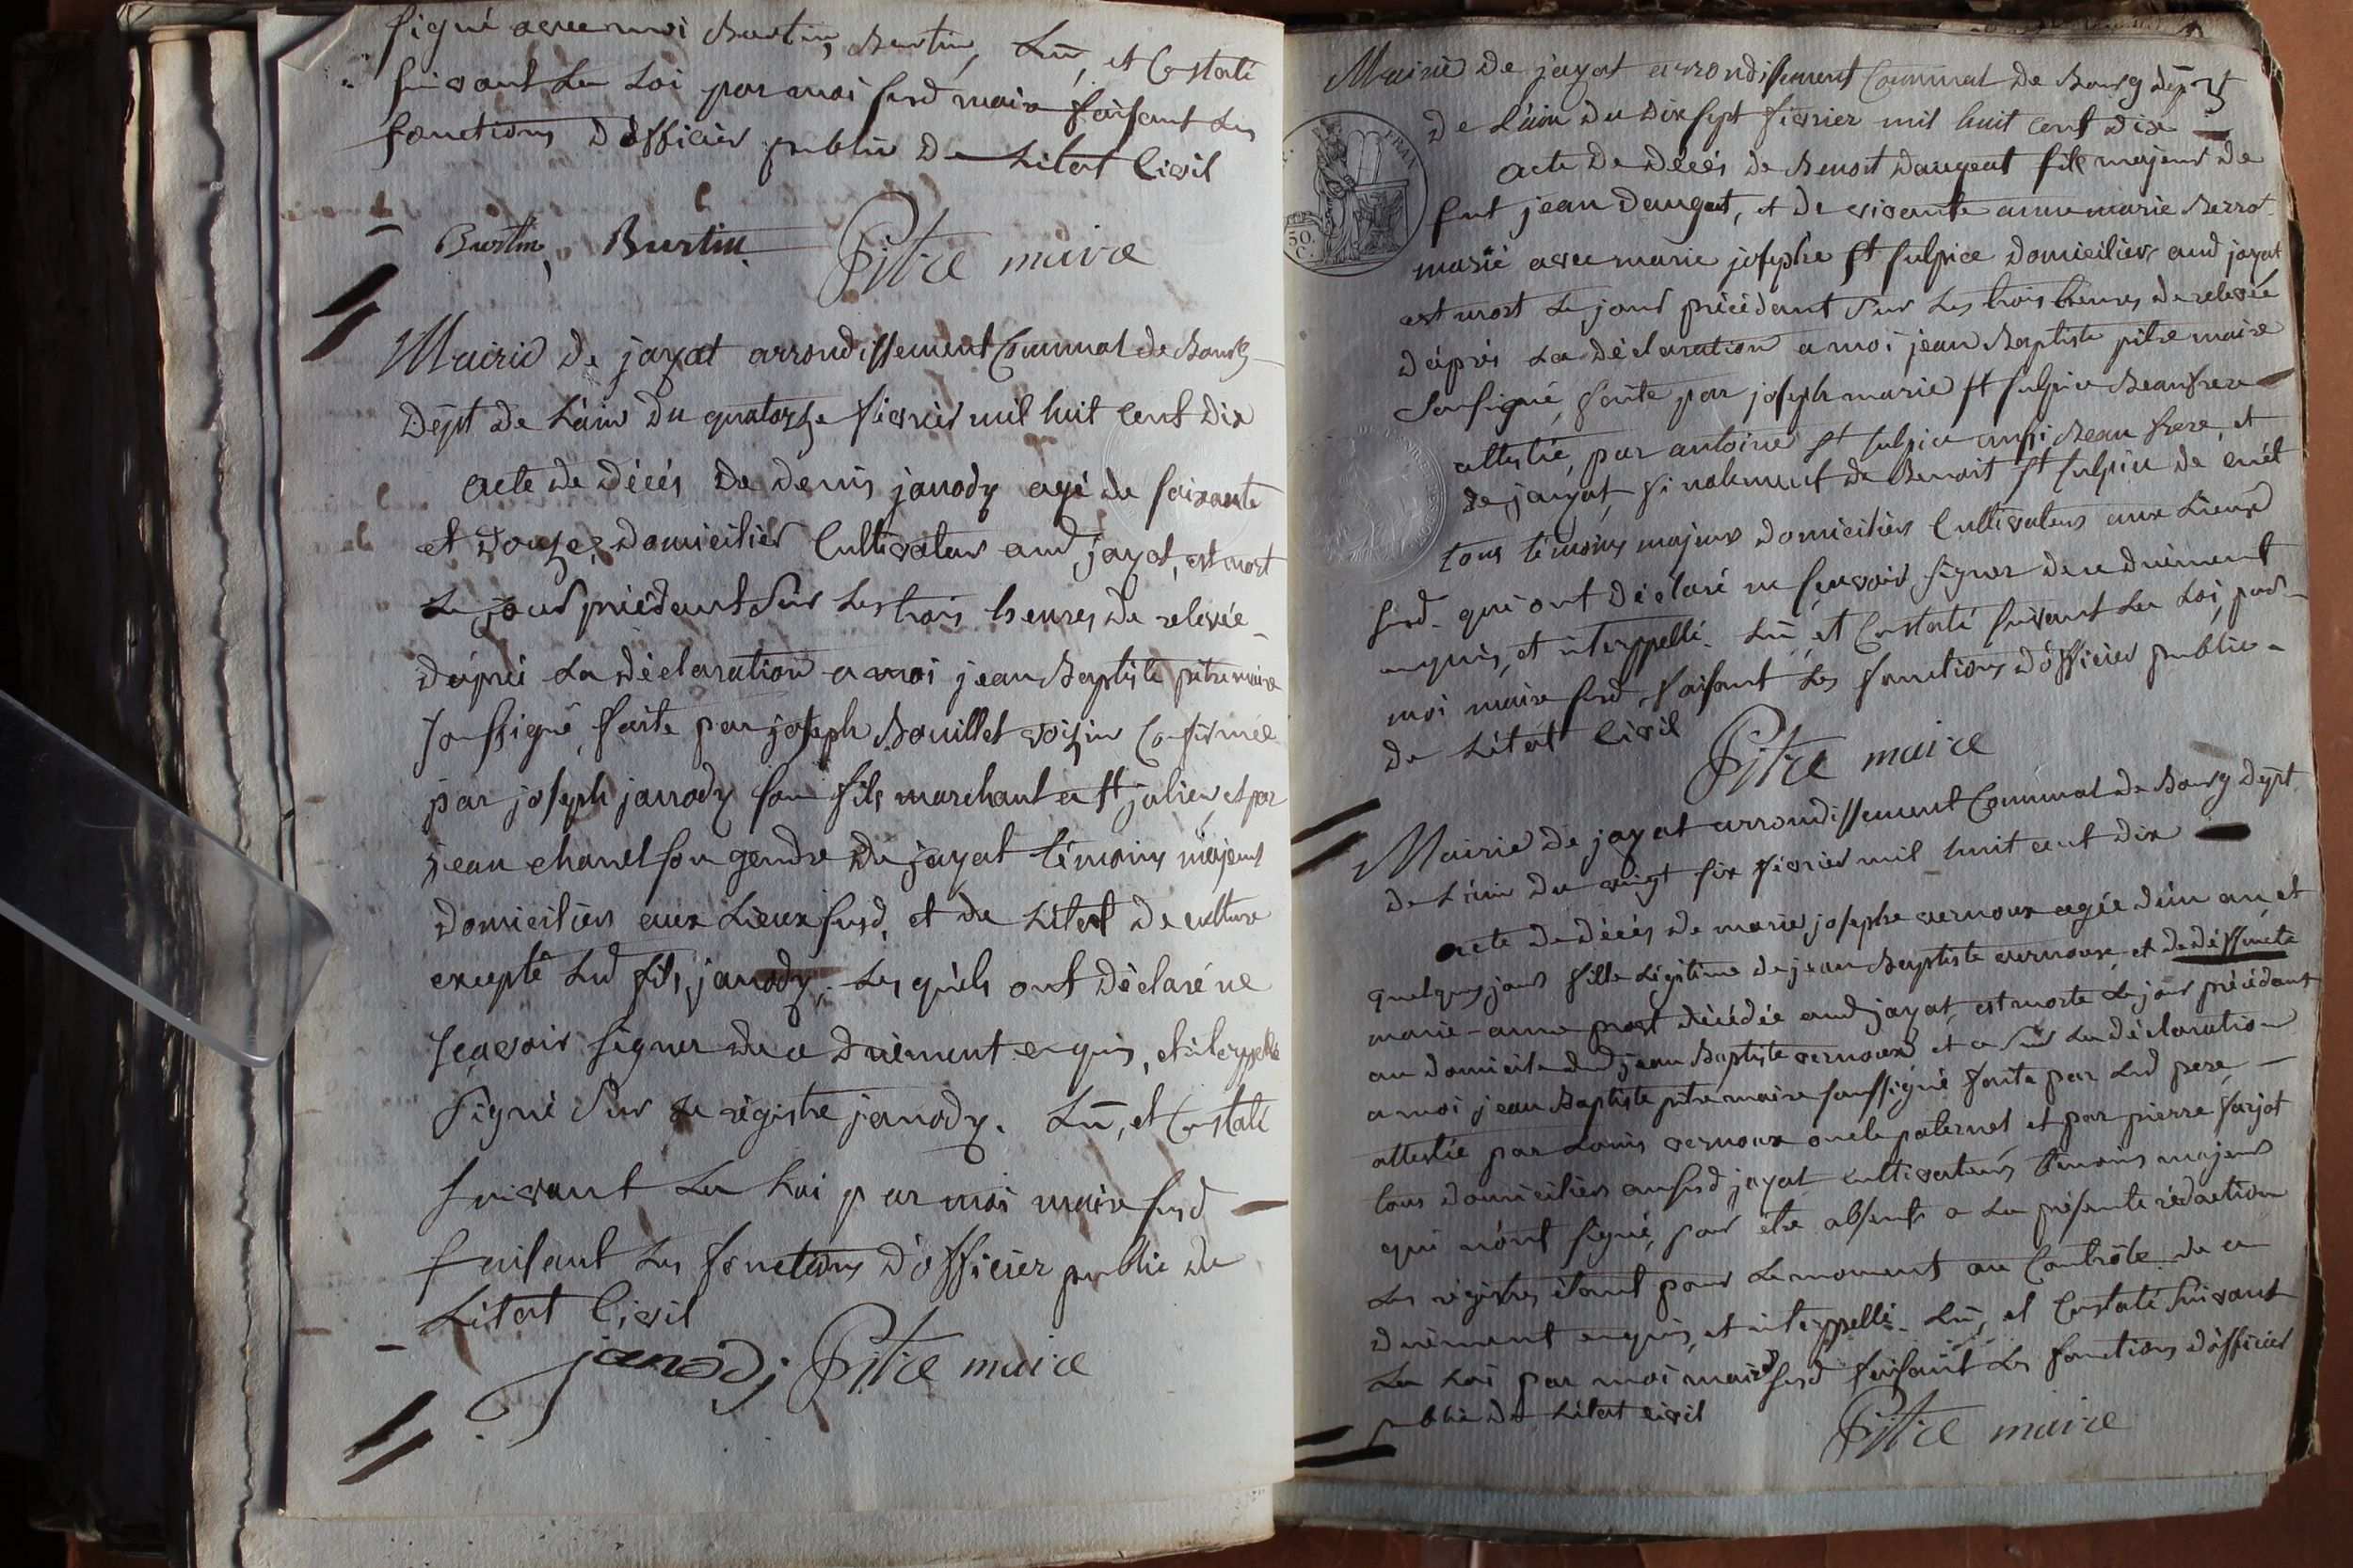 signé avec moi Burtin, Burtin, Lû, et Constaté
suivant La Loi par moi susd maire faisant Les
fonctions D'officier public De Létat Civil
Burtin, Burtin Pitre maire
Mairie De jayat arrondissement Communal De Bourg
Dépt De L'ain Du quatorze fievrier mil huit Cent Dix
acte De Décés De Denis janody agé De soixante
et Douze, Domicilier Cultivateur aud jayat, est mort
Le jour précédant Sur Les trois heures De relevée
D'aprés La Déclaration a moi jean Baptiste pitre maire
soussigné, faite par joseph Bouillet voisin Confirmée
par joseph janody son fils marchant a st julien, et par
jean chanel son gendre De jayat témoins majeurs
Domiciliers aux Lieux susd, et De Létat De culture
excepté Led fils, janody, Les quels ont Déclaré ne
sçavoir signer De ce Duëment enquis, et interppellé
signé Sur Le régistre janody. Lû, et Constaté
suivant La Loi par moi maire susd
faisant Les fonctions D'officier public De
Létat Civil
janodj Pitre maire
Mairie De jayat arrondissement Communal De Bourg Dépt
De L'ain Du Dix sept fievrier mil huit Cent Dix
FRAN
50.
C.
acte De Décés De Benoit Daugeat fils majeur De
fut jean Daugeat, et De vivante anne marie Berrot
marié avec marie josephe st sulpice Domicilier aud jayat
est mort Le jour précédant Sur Les trois heures De relevée
D'aprés La Déclaration a moi jean Baptiste pitre maire
Sousigné, faite par joseph marie st sulpice Beaufrere
attestée, par antoine st sulpice aussi Beau frere, et
De jayat, finalement De Benoit st sulpice De cuét
tous témoins majeurs Domiciliers Cultivateurs aux Lieux
susd. qui ont Déclaré ne sçavoir signer De ce Duëment
enquis, et interppellé. Lû, et Constaté suivant La Loi, par
moi maire susd, faisant Les fonctions D'officier public
De Létat Civil
Pitre maire
Mairie De jayat arrondissement Communal De Bourg Dépt
De L'ain Du vingt six fievrier mil huit cent Dix
acte De Décés De marie josephe vernoux agée D'un an, et
quelques jours fille Légitime De jean Baptiste vernoux, et De Déffuncte
marie-anne prost Décédée aud jayat, est morte Le jour précédant
au Domicile Dud jean Baptiste vernoux et ce Sur La Déclaration
a moi jean Baptiste pitre maire soussigné faite par Led pere,
attestée par Louis vernoux oncle paternel et par pierre farjot
tous Domiciliers au susd jayat cultivateurs témoins majeurs
qui n'ont signé, par étre absents a La présente rédaction
Les régistres étant pour Le moment au Contrôle De ce
Duëment enquis, et interppellé. Lû, et Constaté Suivant
La Loi par moi maire susd faisant Les fonctions D'officier
public De Létat Civil
Pitre maire